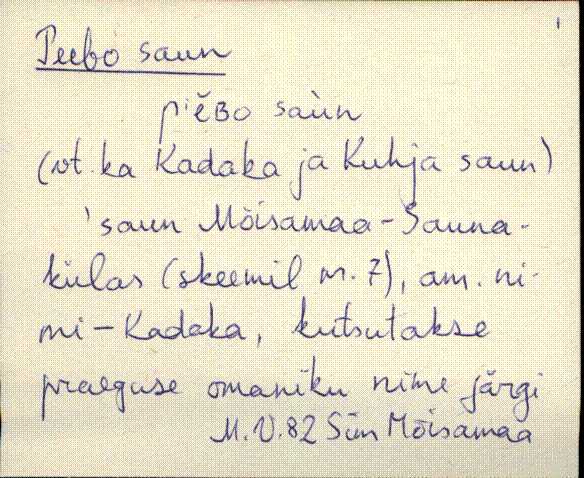 1
Peebo saun
pi̬ĕʙo saùn
(vt. ka Kadaka ja Kuhja saun)
'saun Mõisamaa-Sauna-
külas (skeemil nr. 7), am. ni-
mi - Kadaka, kutsutakse
praeguse omaniku nime järgi
M.V. 82 Sim Mõisamaa